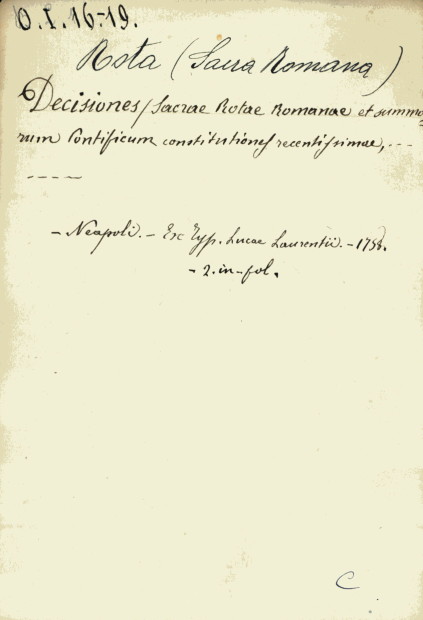 O.I.16-19.
Rota (Sacra Romana)
Decisiones / Sacrae Rotae Romanae et summo
rum Pontificum constitutiones recentissimae, ---
----
- Neapoli. - Ex Typ. Lucae Laurentii. - 1758.
- 2. in-fol.
C